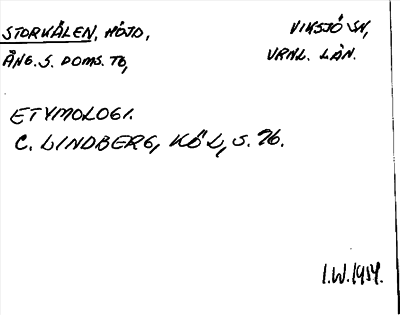 STORKÅLEN, HÖJD, VIKSJÖ SN,
ÅNG. S. DOMS. TG, VRNL. LÄN.
ETYMOLOGI.
C. LINDBERG, KÖL, S. 76.
I.W. 1954.